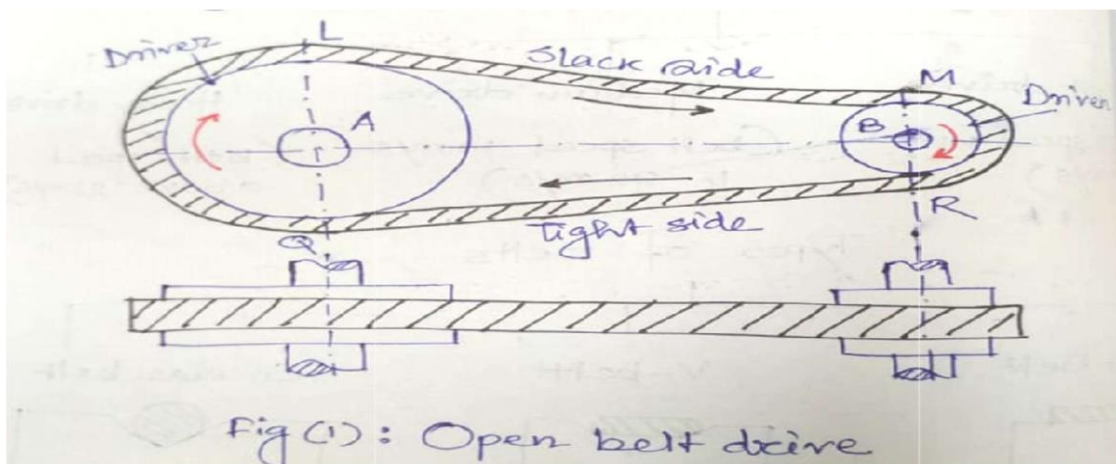 L
Driver
Slack side
M
Driver
A
B
Tight side
R
Q
V-belt
Fig (1): Open belt drive